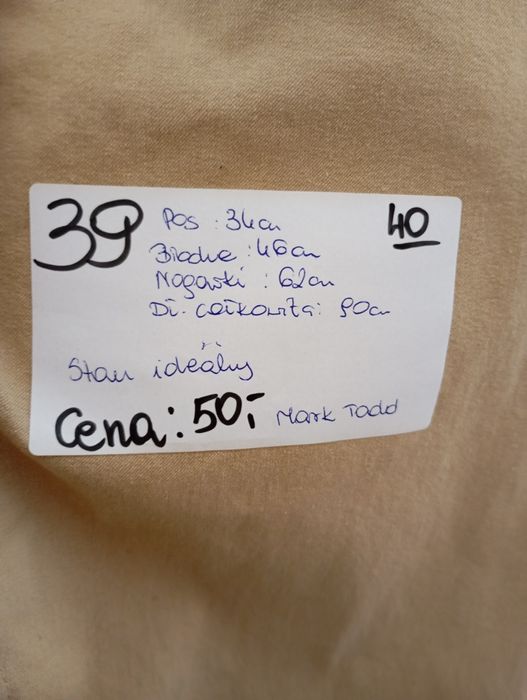 39
Pas : 34cm
40
Biodra : 46cm
Nogawki : 62cm
Dł. całkowita: 90cm
Stan idealny
Cena: 50,-
Mark Todd